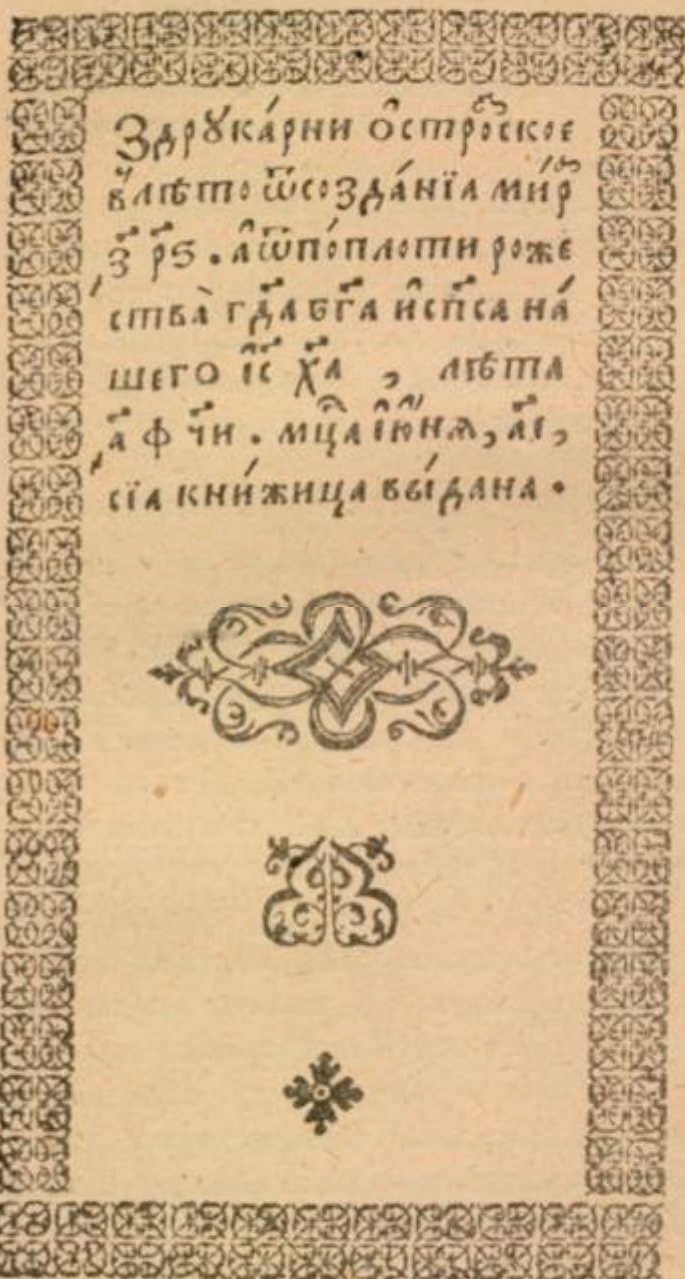 Здрꙋка́рни О҆стро́скоє
в̾лѣто ѿсозда́нїа ми́р
҂з҃ р҃ѕ . А҆ѿпо́плоти роже
ства̀ гд҃а бг҃а и҆сп҃са на́
шего і҆с҃ х҃а , лѣта
҂а҃ ф ч҃и . мц҃а і҆ю́нѧ, а҃і,
сїа кни́жица вы́дана .